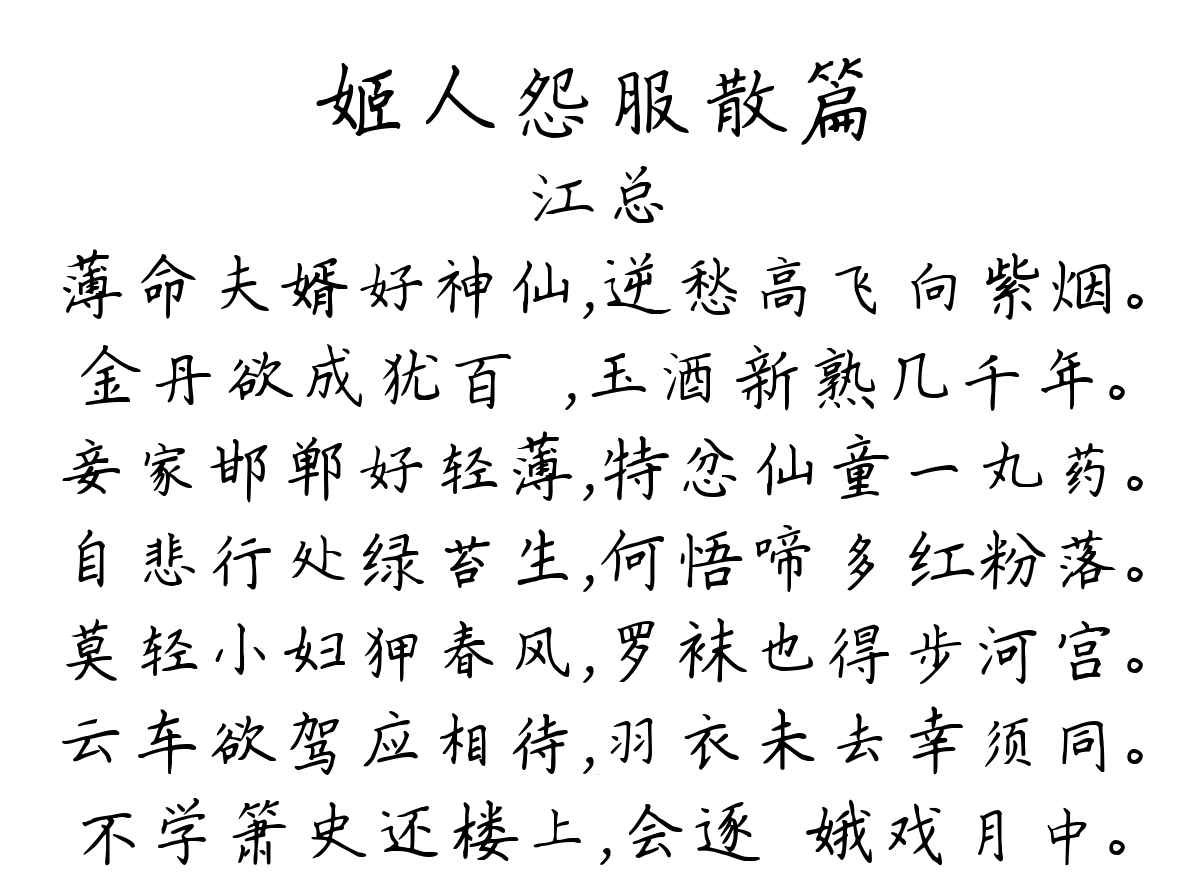 姬人怨服散篇
江总
薄命夫婿好神仙,逆愁高飞向紫烟。
金丹欲成犹百 ,玉酒新熟几千年。
妾家邯郸好轻薄,特忿仙童一丸药。
自悲行处绿苔生,何悟啼多红粉落。
莫轻小妇狎春风,罗袜也得步河宫。
云车欲驾应相待,羽衣未去幸须同。
不学箫史还楼上,会逐 娥戏月中。